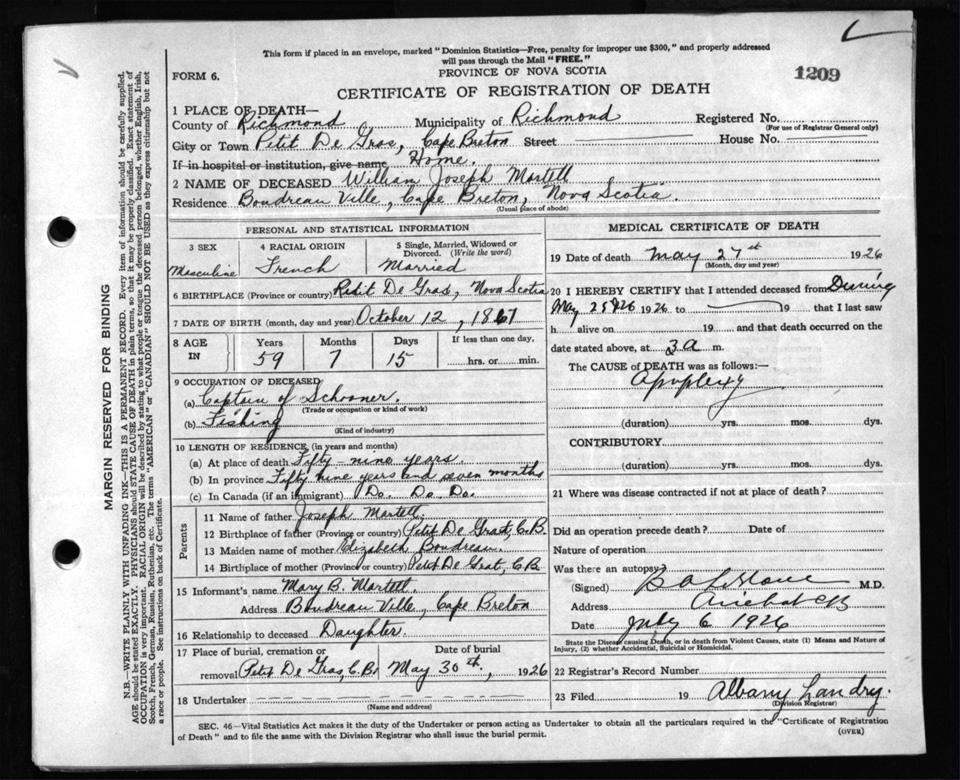 This form if placed in an envelope, marked "Dominion Statistics—Free, penalty for improper use $300," and properly addressed
will pass through the Mail "FREE."
PROVINCE OF NOVA SCOTIA
FORM 6.
1209
CERTIFICATE OF REGISTRATION OF DEATH
1 PLACE OF DEATH—
County of Richmond Municipality of Richmond Registered No.
(For use of Registrar General only)
City or Town Petit De Gras, Cape Breton Street House No.
If in hospital or institution, give name Home.
2 NAME OF DECEASED William Joseph Martell
Residence Boudreau Ville, Cape Breton, Nova Scotia
(Usual place of abode)
PERSONAL AND STATISTICAL INFORMATION
3 SEX 4 RACIAL ORIGIN 5 Single, Married, Widowed or
Divorced. (Write the word)
Masculine French Married
6 BIRTHPLACE (Province or country) Petit De Gras, Nova Scotia
7 DATE OF BIRTH (month, day and year) October 12, 1867
8 AGE IN Years Months Days If less than one day,
59 7 15 hrs. or min.
9 OCCUPATION OF DECEASED
(a) Captain of Schooner.
(Trade or occupation or kind of work)
(b) Fishing
(Kind of industry)
10 LENGTH OF RESIDENCE (in years and months)
(a) At place of death Fifty-nine years.
(b) In province Fifty nine years and seven months
(c) In Canada (if an immigrant) Do. Do. Do.
Parents
11 Name of father Joseph Martell.
12 Birthplace of father (Province or country) Petit De Grat, C.B.
13 Maiden name of mother Elizabeth Boudreau.
14 Birthplace of mother (Province or country) Petit De Grat, C.B.
15 Informant's name Mary B. Martell
Address Boudreau Ville, Cape Breton
16 Relationship to deceased Daughter.
17 Place of burial, cremation or Date of burial
removal Petit De Gras, C.B. May 30th, 1926
18 Undertaker
(Name and address)
MEDICAL CERTIFICATE OF DEATH
19 Date of death May 27st 1926
(Month, day and year)
20 I HEREBY CERTIFY that I attended deceased from During
May 1926 to 19 that I last saw
h alive on 19 and that death occurred on the
date stated above, at 3 a m.
The CAUSE of DEATH was as follows:—
Apoplexy
(duration) yrs. mos. dys.
CONTRIBUTORY
(duration) yrs. mos. dys.
21 Where was disease contracted if not at place of death?
Did an operation precede death? Date of
Nature of operation
Was there an autopsy?
(Signed) M.D.
Address Arichat CB
Date July 6 1926
State the Disease causing Death, or in death from Violent Causes, state (1) Means and Nature of
Injury, (2) whether Accidental, Suicidal or Homicidal.
22 Registrar's Record Number
23 Filed 19 Albany Landry.
(Division Registrar)
SEC. 46—Vital Statistics Act makes it the duty of the Undertaker or person acting as Undertaker to obtain all the particulars required in the "Certificate of Registration
of Death" and to file the same with the Division Registrar who shall issue the burial permit.
(OVER)
MARGIN RESERVED FOR BINDING
N.B.—WRITE PLAINLY WITH UNFADING INK—THIS IS A PERMANENT RECORD. Every item of information should be carefully supplied.
AGE should be stated EXACTLY. PHYSICIANS should STATE CAUSE OF DEATH in plain terms, so that it may be properly classified. Exact statement of
OCCUPATION is very important. RACIAL ORIGIN will be described by stating to what people or tongue the deceased person belonged, whether English, Irish,
Scotch, French, German, Russian, Ruthenian, etc. The terms "AMERICAN" or "CANADIAN" SHOULD NOT BE USED as they express citizenship but not
a race or people. See instructions on back of Certificate.